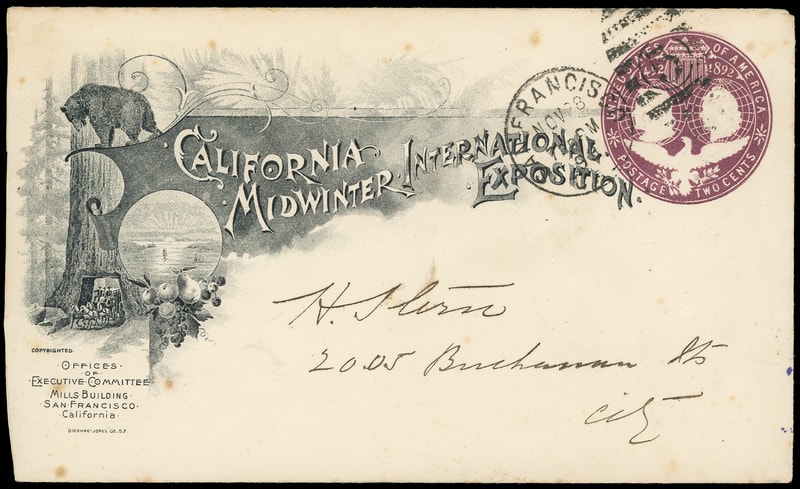 CALIFORNIA
MIDWINTER INTERNATIONAL
EXPOSITION.
FRANCIS
NOV 28
UNITED STATES OF AMERICA
1492 1892
POSTAGE TWO CENTS
H. Stern
2005 Buchanan Sts
City
COPYRIGHTED.
OFFICES
OF
EXECUTIVE COMMITTEE
MILLS BUILDING
SAN FRANCISCO
California
DICKMAN-JONES CO. S.F.